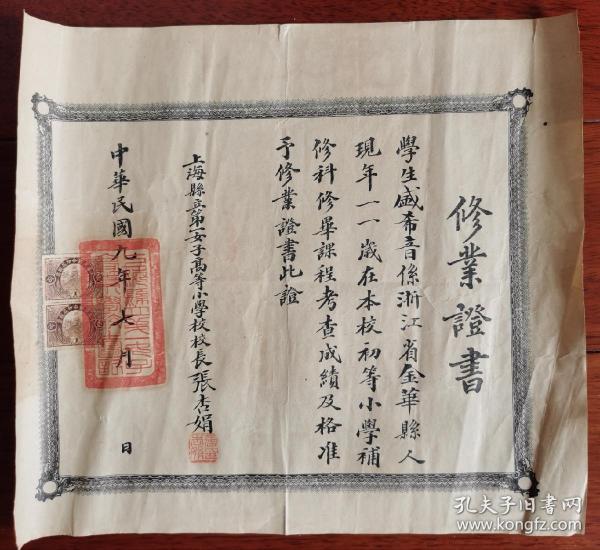 修業證書
學生盛希音係浙江省金華縣人
現年一一歲在本校初等小學補
修科修畢課程考查成績及格准
予修業證書此證
上海縣立第一女子高等小學校校長張杏娟
中華民國九年七月 日
孔夫子旧書网
www.kongfz.com